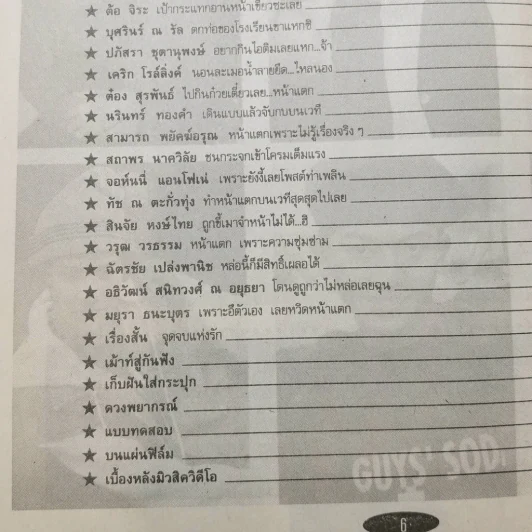 ★ ต้อ จิระ เป้ากระแทกอานหน้าเขียวซะเลย
★ บุศรินร์ ณ รัล ตกท่อของโรงเรียนขาแทกซิ
★ ปภัสรา ชุตานุพงษ์ อยากกินไอติมเลยแหก...จ้า
★ เคริก โรส์ลิ่งค์ นอนละเมอน้ำลายยืด...ไหลนอง
★ ต๋อง สุรพันธ์ ไปกินก๋วยเตี๋ยวเลย...หน้าแตก
★ นรินทร์ ทองคำ เดินแบบแล้วจับกบบนเวที
★ สามารถ พยัคฆ์อรุณ หน้าแตกเพราะไม่รู้เรื่องจริง ๆ
★ สถาพร นาควิลัย ชนกระจกเข้าโครมเต็มแรง
★ จอห์นนี่ แอนโฟเน่ เพราะยังงี้เลยโพสต์ท่าเพลิน
★ ทัช ณ ตะกั่วทุ่ง ทำหน้าแตกบนเวทีสุดสุดไปเลย
★ สินจัย หงษ์ไทย ถูกขี้เมาจำหน้าไม่ได้...ฮิ
★ วรุฒ วรธรรม หน้าแตก เพราะความซุ่มซ่าม
★ ฉัตรชัย เปล่งพานิช หล่อนี้ก็มีสิทธิ์เผลอได้
★ อธิวัฒน์ สนิทวงศ์ ณ อยุธยา โดนดูถูกว่าไม่หล่อเลยฉุน
★ มยุรา ธนะบุตร เพราะอีตัวเอง เลยหวิดหน้าแตก
★ เรื่องสั้น จุดจบแห่งรัก
★ เม้าท์สู่กันฟัง
★ เก็บฝันใส่กระปุก
★ ดวงพยากรณ์
★ แบบทดสอบ
★ บนแผ่นฟิล์ม
★ เบื้องหลังมิวสิควิดีโอ
GUYS' SOD.
6